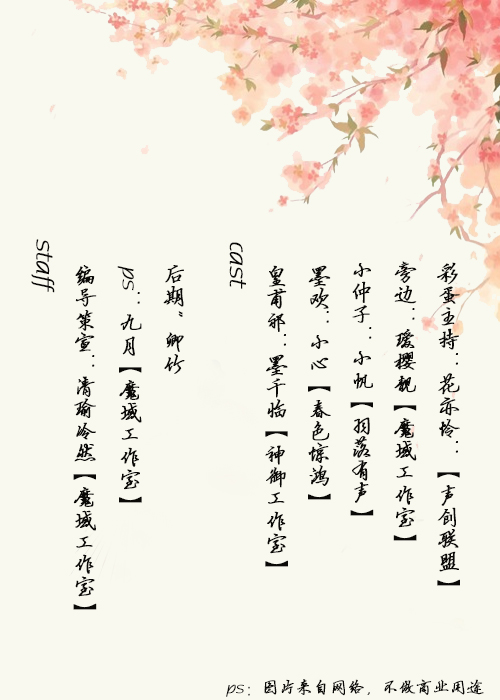 staff
编导策宣：清瑜冷然【魔域工作室】
ps：九月【魔域工作室】
后期：卿竹
cast
皇甫邪：墨千临【神御工作室】
墨欢：小心【春色惊鸿】
小仲子：小帆【羽落有声】
旁边：瑷樱靓【魔域工作室】
彩蛋主持：花亦怜：【声创联盟】
ps：图片来自网络，不做商业用途